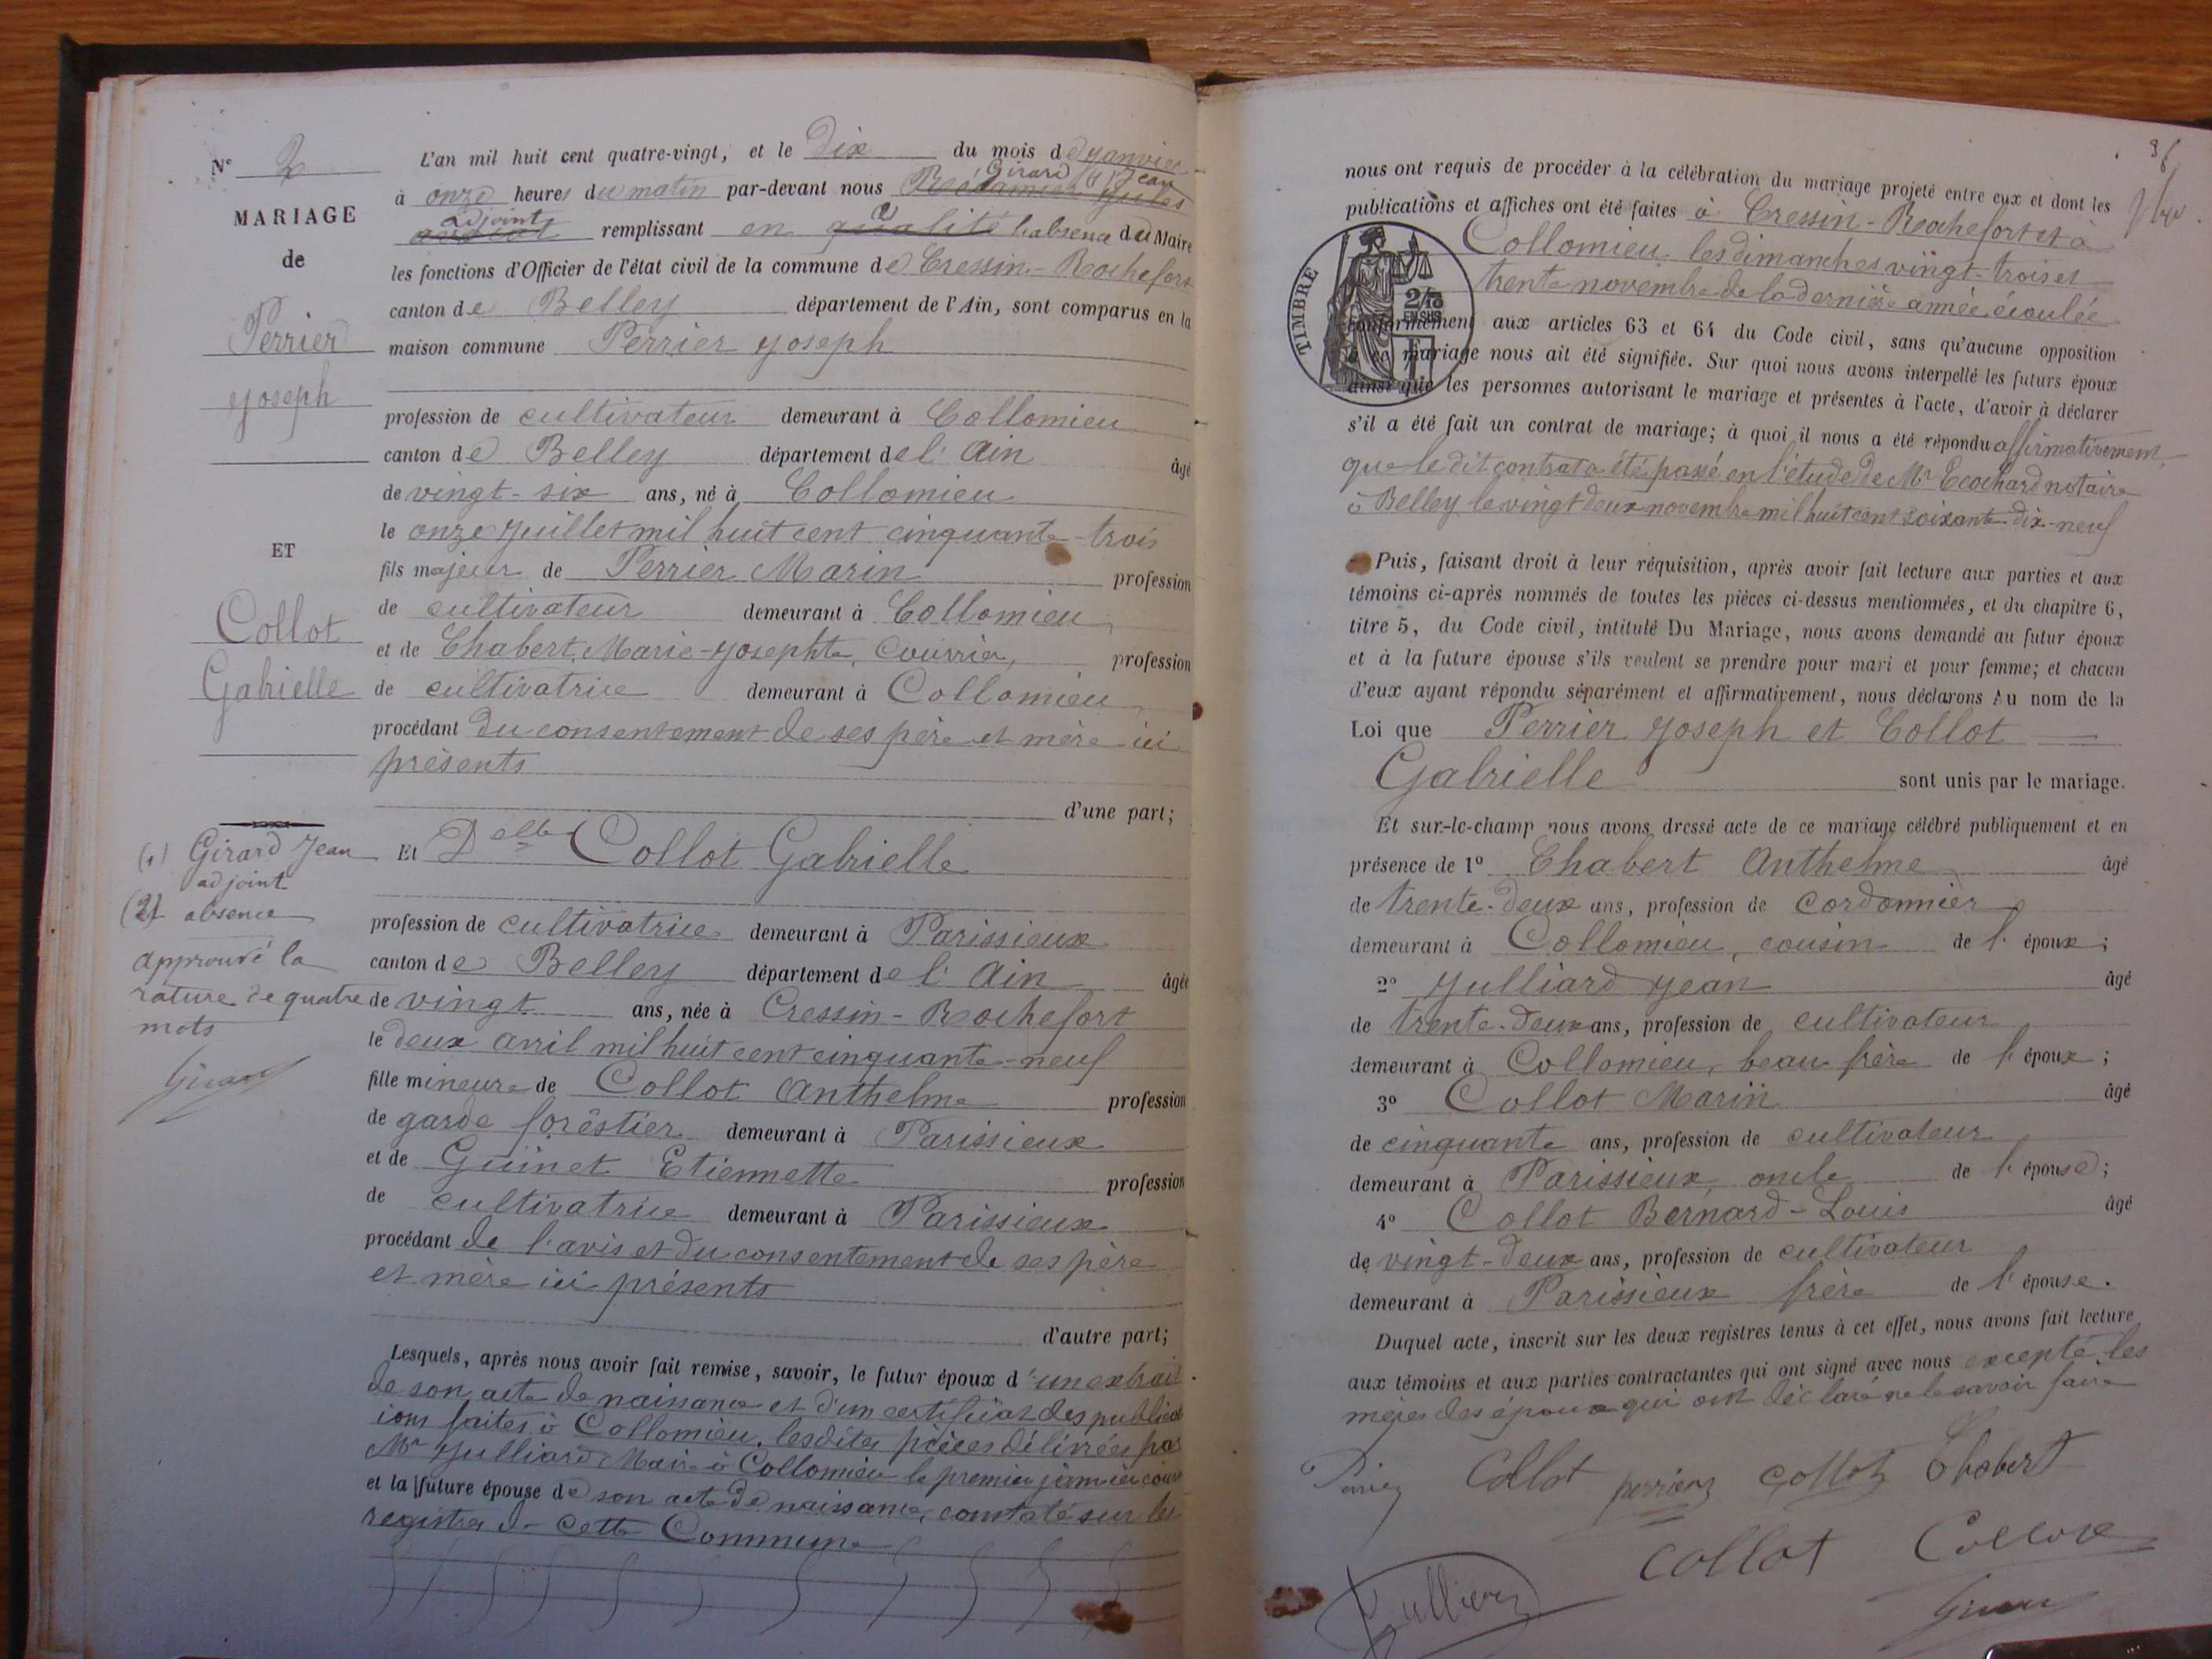 N° 2
MARIAGE
de
Perrier
Joseph
ET
Collot
Gabrielle
(1) Girard Jean
adjoint
(2) absence
approuvé la
rature de quatre
mots
Girard
L'an mil huit cent quatre-vingt, et le dix du mois de Janvier
Girard (1) Jean
à onze heures du matin par-devant nous Jules
adjoint
remplissant en qualité l'absence du Maire
les fonctions d'Officier de l'état civil de la commune de Cressin-Rochefort
canton de Belley département de l'Ain, sont comparus en la
maison commune Perrier Joseph
profession de cultivateur demeurant à Collomieu
canton de Belley département de l'Ain âgé
de vingt-six ans, né à Collomieu
le onze Juillet mil huit cent cinquante-trois
fils majeur de Perrier Marin profession
de cultivateur demeurant à Collomieu
et de Chabert Marie-Josephte, profession
de cultivatrice demeurant à Collomieu
procédant du consentement de ses père et mère ici
présents
d'une part;
Et Delle Collot Gabrielle
profession de cultivatrice demeurant à Parissieux
canton de Belley département de l'Ain âgée
de vingt ans, née à Cressin-Rochefort
le deux avril mil huit cent cinquante-neuf
fille mineure de Collot Anthelme profession
de garde forêstier demeurant à Parissieux
et de Guinet Etiennette profession
de cultivatrice demeurant à Parissieux
procédant de l'avis et du consentement de ses père
et mère ici présents
d'autre part;
Lesquels, après nous avoir fait remise, savoir, le futur époux d'un extrait
de son acte de naissance et d'un certificat des publicat
ions faites à Collomieu, lesdites pièces délivrées par
Mr Julliard Maire à Collomieu le premier janvier cour
et la future épouse de son acte de naissance, constaté sur les
registres de cette Commune
nous ont requis de procéder à la célébration du mariage projeté entre eux et dont les
publications et affiches ont été faites à Cressin-Rochefort et à
Collomieu les dimanches vingt-trois et
trente novembre de la dernière année écoulée
TIMBRE
conformément aux articles 63 et 64 du Code civil, sans qu'aucune opposition
à ce mariage nous ait été signifiée. Sur quoi nous avons interpellé les futurs époux
ainsi que les personnes autorisant le mariage et présentes à l'acte, d'avoir à déclarer
s'il a été fait un contrat de mariage; à quoi il nous a été répondu affirmativement,
que le dit contrat a été passé en l'étude de Mr Ecochard notaire
à Belley le vingt deux novembre mil huit cent soixante-dix-neuf
Puis, faisant droit à leur réquisition, après avoir fait lecture aux parties et aux
témoins ci-après nommés de toutes les pièces ci-dessus mentionnées, et du chapitre 6,
titre 5, du Code civil, intitulé Du Mariage, nous avons demandé au futur époux
et à la future épouse s'ils veulent se prendre pour mari et pour femme; et chacun
d'eux ayant répondu séparément et affirmativement, nous déclarons Au nom de la
Loi que Perrier Joseph et Collot
Gabrielle sont unis par le mariage.
Et sur-le-champ nous avons dressé acte de ce mariage célébré publiquement et en
présence de 1° Chabert Anthelme âgé
de trente-deux ans, profession de cordonnier
demeurant à Collomieu, cousin de l'époux;
2° Julliard Jean âgé
de trente-deux ans, profession de cultivateur
demeurant à Collomieu, beau frère de l'époux;
3° Collot Marin âgé
de cinquante ans, profession de cultivateur
demeurant à Parissieux, oncle de l'épouse;
4° Collot Bernard-Louis âgé
de vingt-deux ans, profession de cultivateur
demeurant à Parissieux frère de l'épouse.
Duquel acte, inscrit sur les deux registres tenus à cet effet, nous avons fait lecture
aux témoins et aux parties contractantes qui ont signé avec nous excepté les
mères des époux qui ont déclaré ne le savoir faire
Perrier Collot perrier Collot Chabert
Collot Collot
Girard